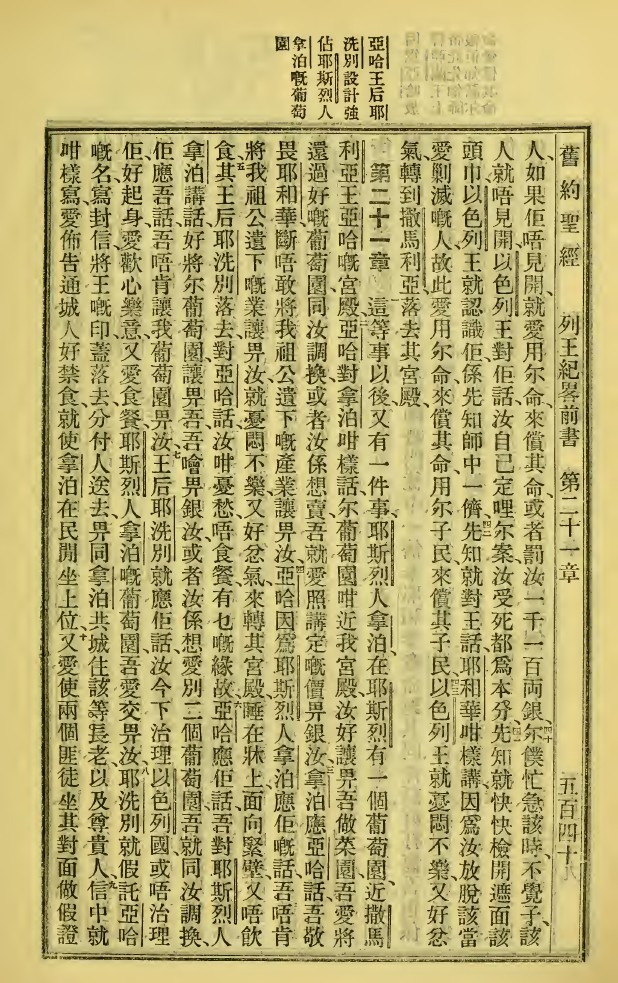 舊約聖經　列王紀畧前書　第二十一章　五百四十八
人如果佢唔見開就愛用尔命來償其命或者罰汝一千一百両銀、四十尔僕忙急該時、不覺子、該
人就唔見開以色列王對佢話汝自己定哩尔案汝受死都爲本分、四一先知就快快檢開遮面該
頭巾以色列王就認識佢係先知師中一儕、四二先知就對王話、耶和華咁樣講、因爲汝放脫該當
愛剿滅嘅人故此愛用尔命來償其命用尔子民來償其子民、四三以色列王就憂悶不樂又好忿
氣轉到撒馬利亞落去其宮殿、
第二十一章　一這等事以後、又有一件事、耶斯烈人拿泊、在耶斯烈有一個葡萄園、近撒馬
利亞王亞哈嘅宮殿、二亞哈對拿泊咁樣話、尔葡萄園咁近我宮殿、汝好讓畀吾做菜園、吾愛將
還過好嘅葡萄園同汝調換、或者汝係想賣、吾就愛照講定嘅價畀銀汝、三拿泊應亞哈話、吾敬
畏耶和華、斷唔敢將我祖公遺下嘅產業讓畀汝、四亞哈因爲耶斯烈人拿泊應佢嘅話、吾唔肯
將我祖公遺下嘅業讓畀汝、就憂悶不樂、又好忿氣來轉其宮殿、睡在牀上、面向緊壁、又唔飲
食、五其王后耶洗別落去對亞哈話、汝咁憂愁、唔食餐、有乜嘅緣故、六亞哈應佢話、吾對耶斯烈人
拿泊講話、好將尔葡萄園讓畀吾、吾噲畀銀汝、或者汝係想愛別二個葡萄園、吾就同汝調換、
佢應吾話、吾唔肯讓我葡萄園畀汝、七王后耶洗別就應佢話、汝今下治理以色列國或唔治理
佢、好起身、愛歡心樂意、又愛食餐、耶斯烈人拿泊嘅葡萄園、吾愛交畀汝、八耶洗別就假託亞哈
嘅名寫封信、將王嘅印蓋落去、分付人送去畀同拿泊共城住該等長老以及尊貴人、九信中就
咁樣寫、愛佈告通城人好禁食、就使拿泊在民間坐上位、十又愛使兩個匪徒坐其對面做假證
亞哈王后耶
洗別設計強
佔耶斯烈人
拿泊嘅葡萄
園